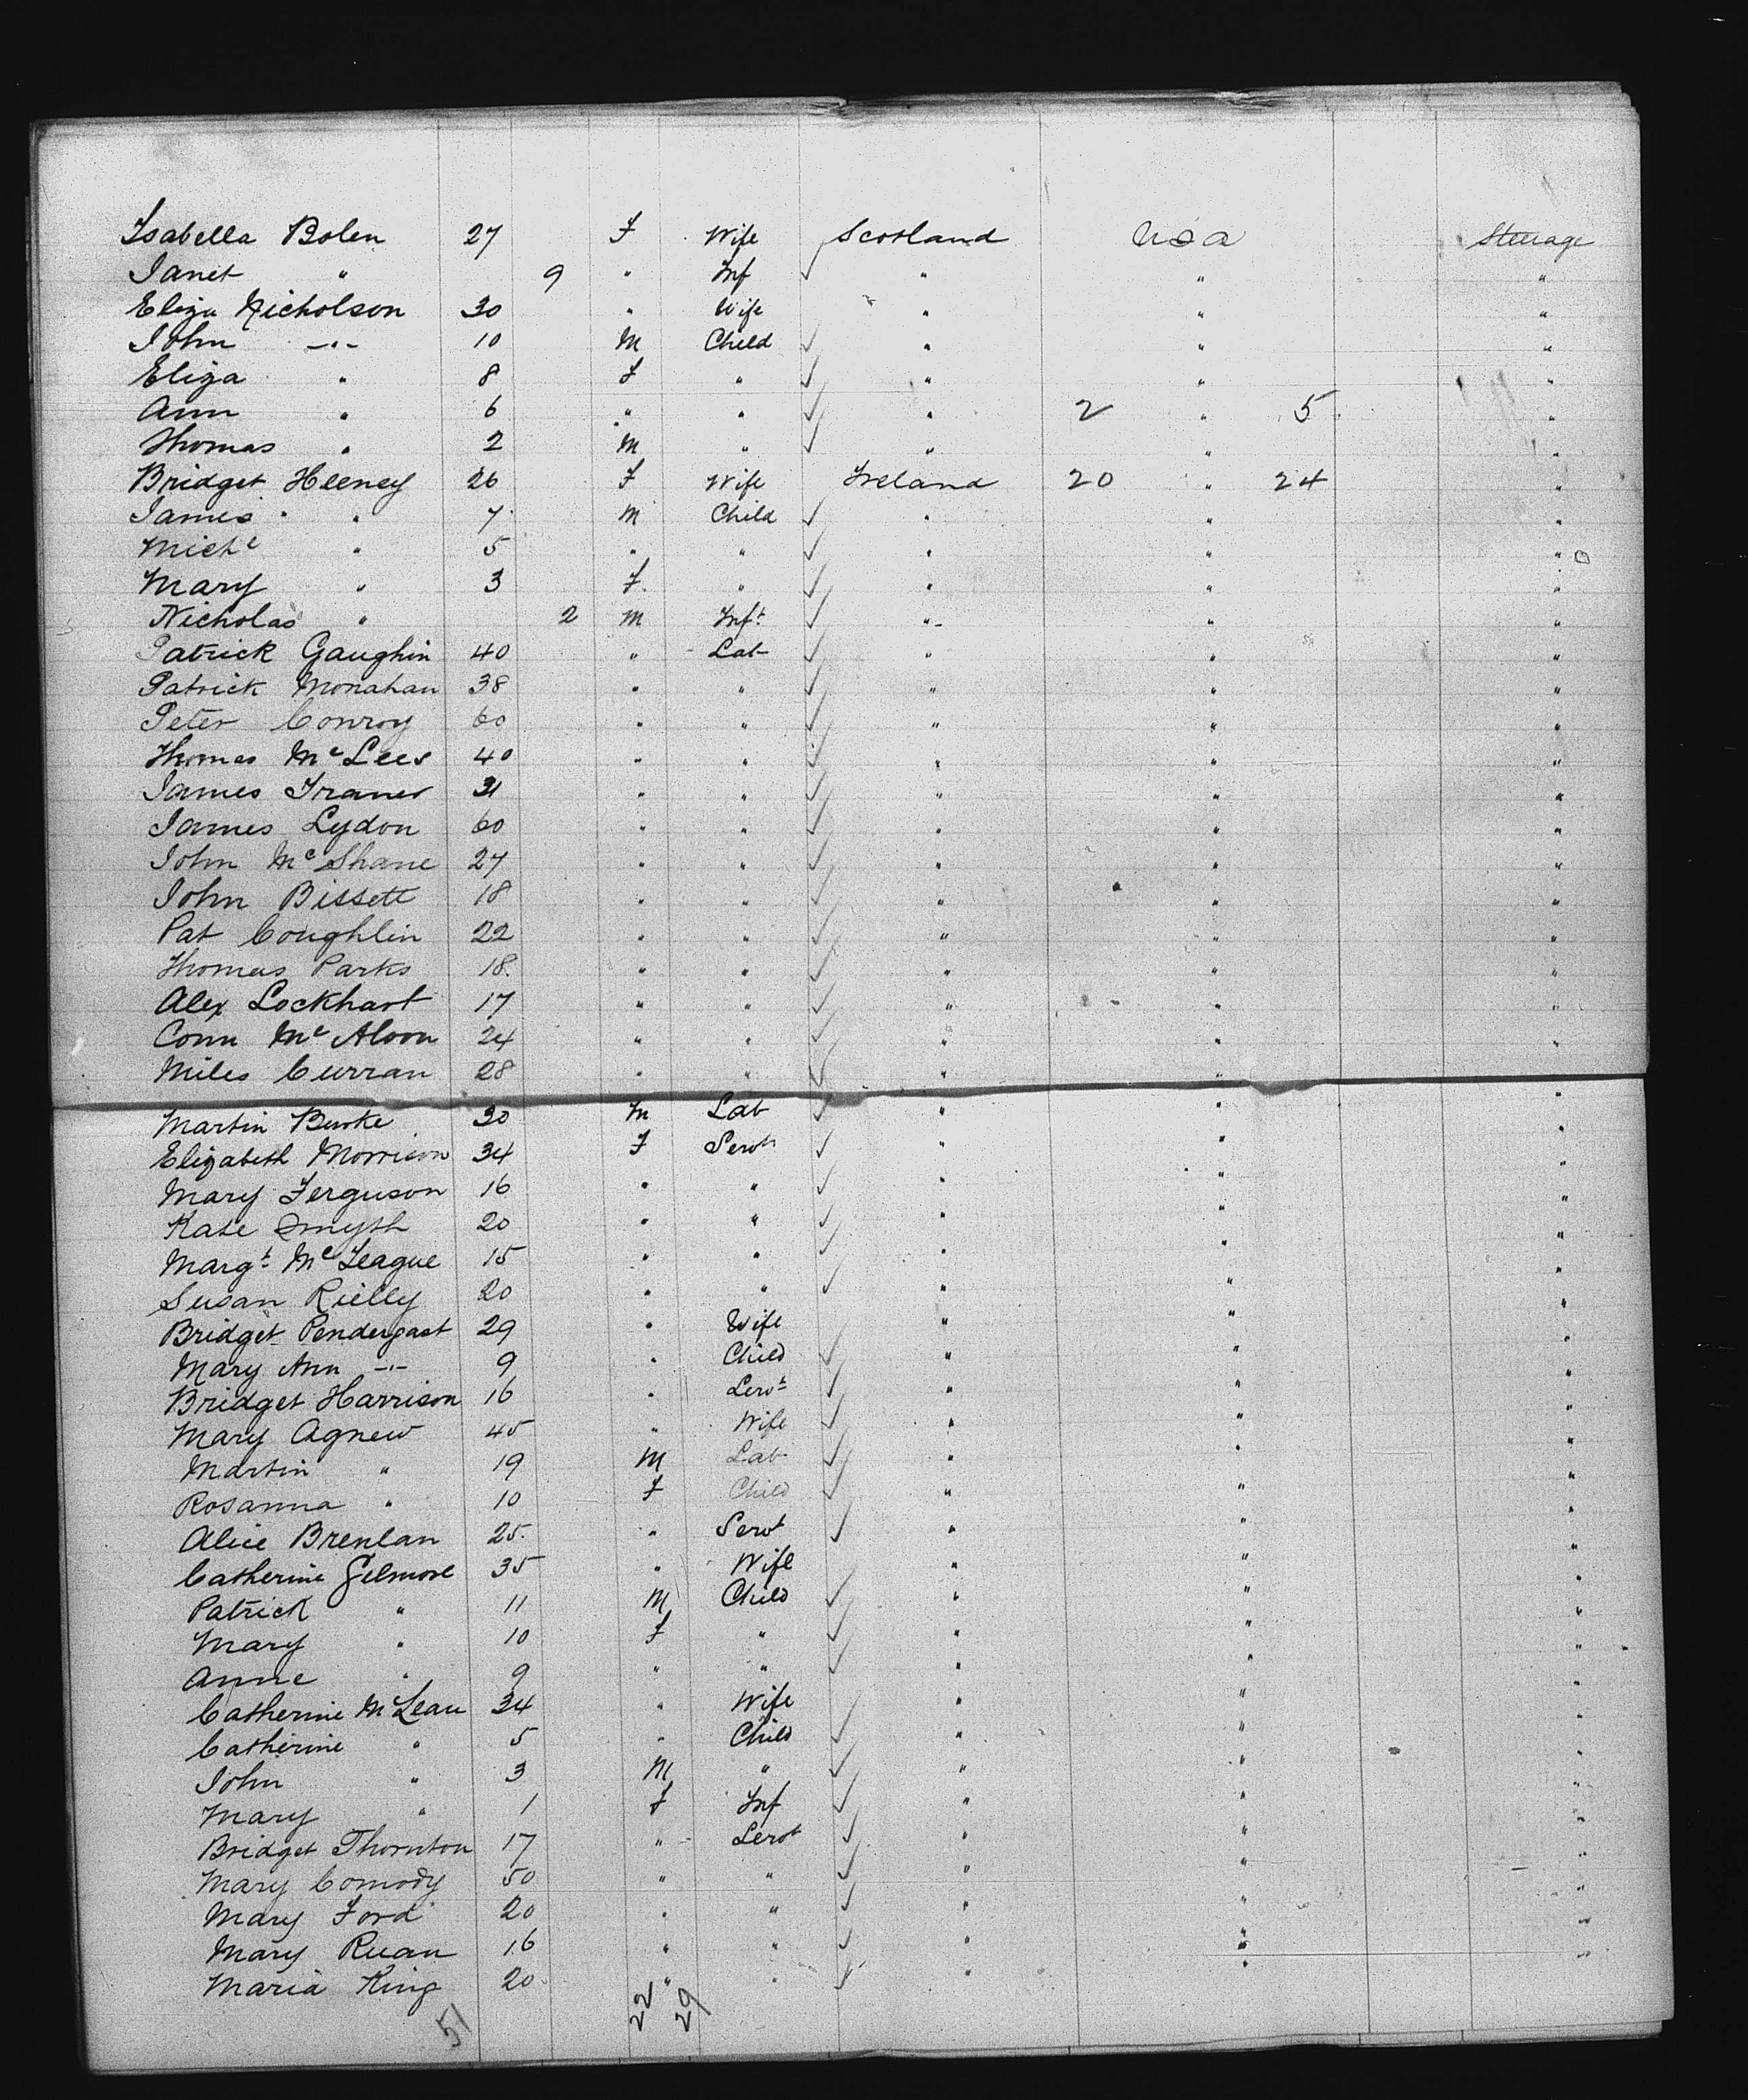 Isabella Bolen 27 F Wife Scotland USA Steerage
Janet " 9 " Inf " " "
Eliza Nicholson 30 " Wife " " "
John -"- 10 M Child " " "
Eliza " 8 F " " " "
Ann " 6 " " " 2 " 5 "
Thomas " 2 M " " " "
Bridget Heeney 26 F Wife Ireland 20 " 24 "
James " 7 M Child " " "
Michl " 5 " " " " "
Mary " 3 F " " " "
Nicholas " 2 M Inft " " "
Patrick Gaughin 40 " Lab " " "
Patrick Monahan 38 " " " " "
Peter Conroy 60 " " " " "
Thomas McLees 40 " " " " "
James Traner 31 " " " " "
James Lydon 60 " " " " "
John McShane 27 " " " " "
John Bissett 18 " " " " "
Pat Coughlin 22 " " " " "
Thomas Parks 18 " " " " "
Alex Lockhart 17 " " " " "
Conn McAloon 24 " " " " "
Miles Curran 28 " " " " "
Martin Burke 30 M Lab " " "
Elizabeth Morrison 34 F Servt " " "
Mary Ferguson 16 " " " " "
Kate Smyth 20 " " " " "
Margt McTeague 15 " " " " "
Susan Rielly 20 " " " " "
Bridget Pendergast 29 " Wife " " "
Mary Ann -"- 9 " Child " " "
Bridget Harrison 16 " Servt " " "
Mary Agnew 45 " Wife " " "
Martin " 19 M Lab " " "
Rosanna " 10 F Child " " "
Alice Brenlan 25 " Servt " " "
Catherine Gelmore 35 " Wife " " "
Patrick " 11 M Child " " "
Mary " 10 F " " " "
Anne " 9 " " " " "
Catherine McLean 34 " Wife " " "
Catherine " 5 " Child " " "
John " 3 M " " " "
Mary " 1 F Inf " " "
Bridget Thornton 17 " Servt " " "
Mary Comody 50 " " " " "
Mary Ford 20 " " " " "
Mary Ruan 16 " " " " "
Maria King 20 " " " " "
51 22 29